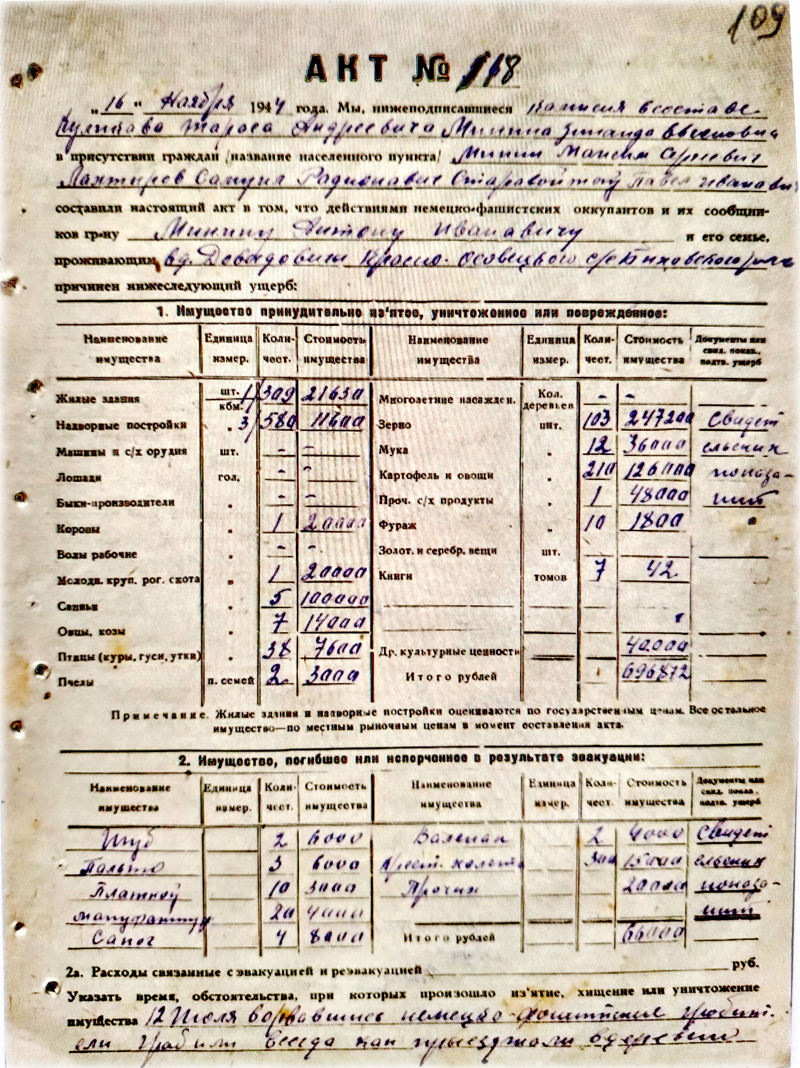 109
АКТ № 118
„16“ Ноября 1944 года. Мы, нижеподписавшиеся Комисия в составе
Куликова Тароса Андреевича Минина Зинаида
в присутствии граждан /название населенного пункта/ Минин Максим Сергеевич
Самуил Радионавич Старавойтов Павел Иванавич
составили настоящий акт в том, что действиями немецко-фашистских оккупантов и их сообщни-
ков гр-ну Минину Антону Иванавичу и его семье,
проживающим в д. Давыдовичи Красно-Осовецкого с/с
причинен нижеследующий ущерб:
1. Имущество принудительно из'ятое, уничтоженное или поврежденное:
Наименование имущества Единица измер. Коли-чест. Стоимость имущества Наименование имущества Единица измер. Коли-чест. Стоимость имущества Документы или свид. показ., подтв. ущерб
Жилые здания шт. кбм. 1/309 21630 Многолетние насажден. Кол. деревьев - -
Надворные постройки „ 3/580 11600 Зерно цнт. 103 247200 Свидет
Машины и с/х орудия шт. - - Мука „ 12 36000 ельских
Лошади гол. - - Картофель и овощи „ 210 126000 показа-
Быки-производители „ - - Проч. с/х продукты „ 1 48000 ний
Коровы „ 1 20000 Фураж „ 10 1800
Волы рабочие „ - - Золот. и серебр. вещи шт.
Молодн. круп. рог. скота „ 1 20000 Книги томов 7 42
Свиньи „ 5 100000
Овцы, козы „ 7 14000
Птицы (куры, гуси, утки) „ 38 7600 Др. культурные ценности 40000
Пчелы п. семей 2 3000 Итого рублей 696872
Примечание. Жилые здания и надворные постройки оцениваются по государственным ценам. Все остальное
имущество—по местным рыночным ценам в момент составления акта.
2. Имущество, погибшее или испорченное в результате эвакуации:
Наименование имущества Единица измер. Коли-чест. Стоимость имущества Наименование имущества Единица измер. Коли-чест. Стоимость имущества Документы или свид. показ., подтв. ущерб
Шуб 2 6000 Валенак 2 4000 Свидет
Пальто 3 6000 300 15000 ельских
Платков 10 3000 Прочих 20000 показа-
мануфактур 20 4000 ний
Сапог 4 8000 Итого рублей 66000
2а. Расходы связанные с эвакуацией и реэвакуацией руб.
Указать время, обстоятельства, при которых произошло из'ятие, хищение или уничтожение
имущества 12 Июля ворвавшись немецко-фошитские грабит-
ели грабили всегда как приезджали в деревню